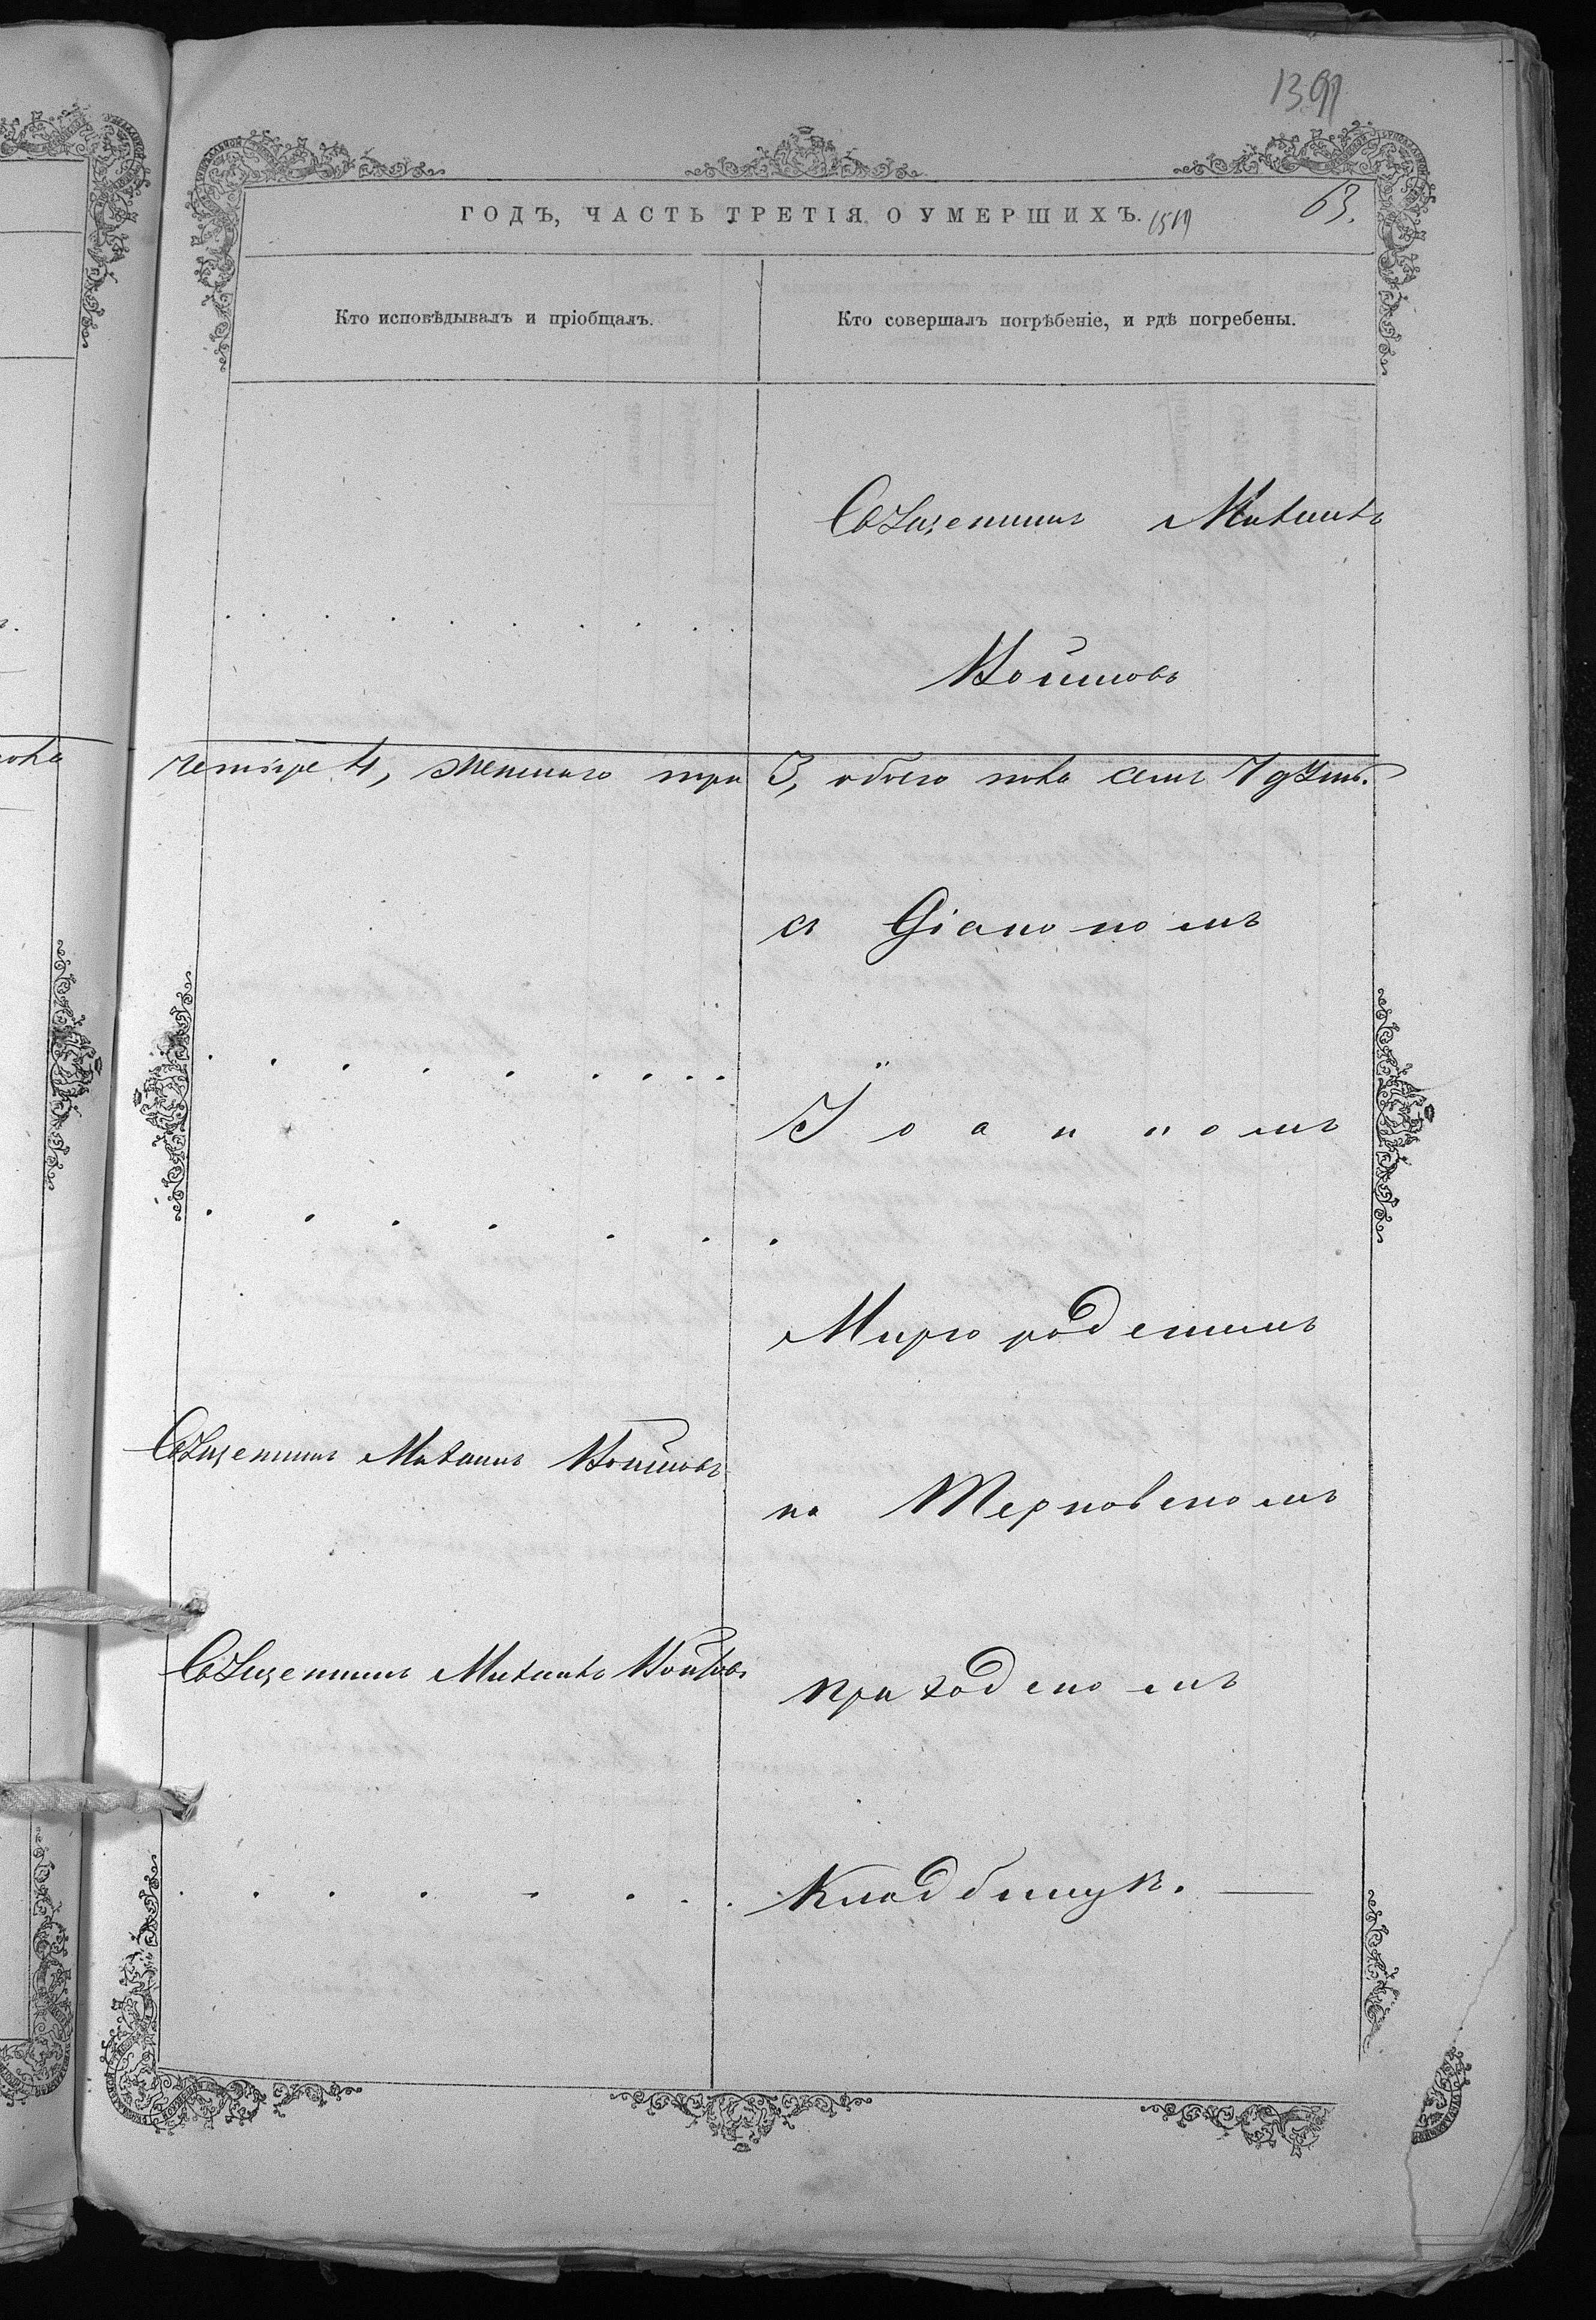 63.
ГОДЪ, ЧАСТЬ ТРЕТІЯ О УМЕРШИХЪ.
Кто исповѣдывалъ и пріобщалъ.
Кто совершалъ погрѣбеніе, и гдѣ погребены.
Священникъ Михаилъ
Войтовъ
четыре 4, женскаго три 3, обоего пола семь 7 душъ.
съ Діакономъ
Іоанномъ
Миргородскимъ
Священникъ Михаилъ Войтовъ
на Терновскомъ
Священникъ Михаилъ Войтовъ
приходскомъ
Кладбищѣ.